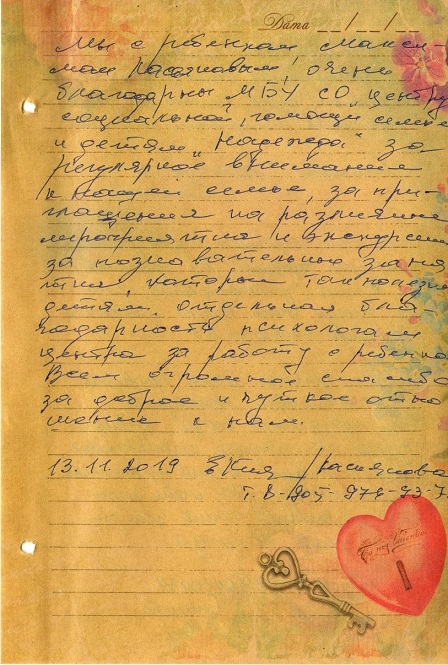 Дата __/__/__
Мы с ребенком Макси-
мом очень
благодарны МБУ СО „Центру
социальной помощи семье
и детям „Надежда" за
регулярное внимание
к нашей семье, за при-
глашения на различные
мероприятия и экскурсии
за познавательные заня
тия, которые так полезн
детям. Отдельная бла-
годарность психологам
центра за работу с ребенко
Всем огромное спасибо
за доброе и чуткое отно
шение к нам.
13.11.2019
т. 8-905-